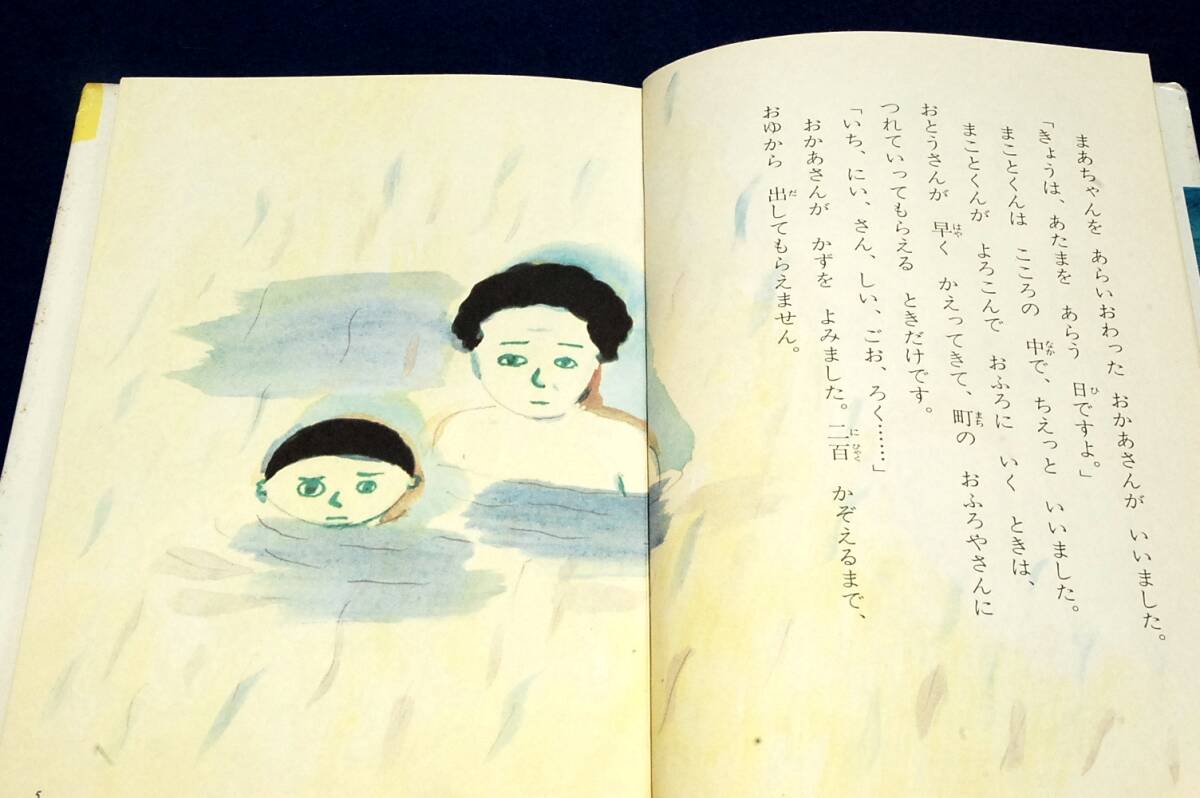 まあちゃんを あらいおわった おかあさんが いいました。
「きょうは、あたまを あらう 日ですよ。」
まことくんは こころの 中で、ちえっと いいました。
まことくんが よろこんで おふろに いく ときは、
おとうさんが 早く かえってきて、町の おふろやさんに
つれていってもらえる ときだけです。
「いち、にい、さん、しい、ごお、ろく……」
おかあさんが かずを よみました。二百 かぞえるまで、
おゆから 出してもらえません。
5